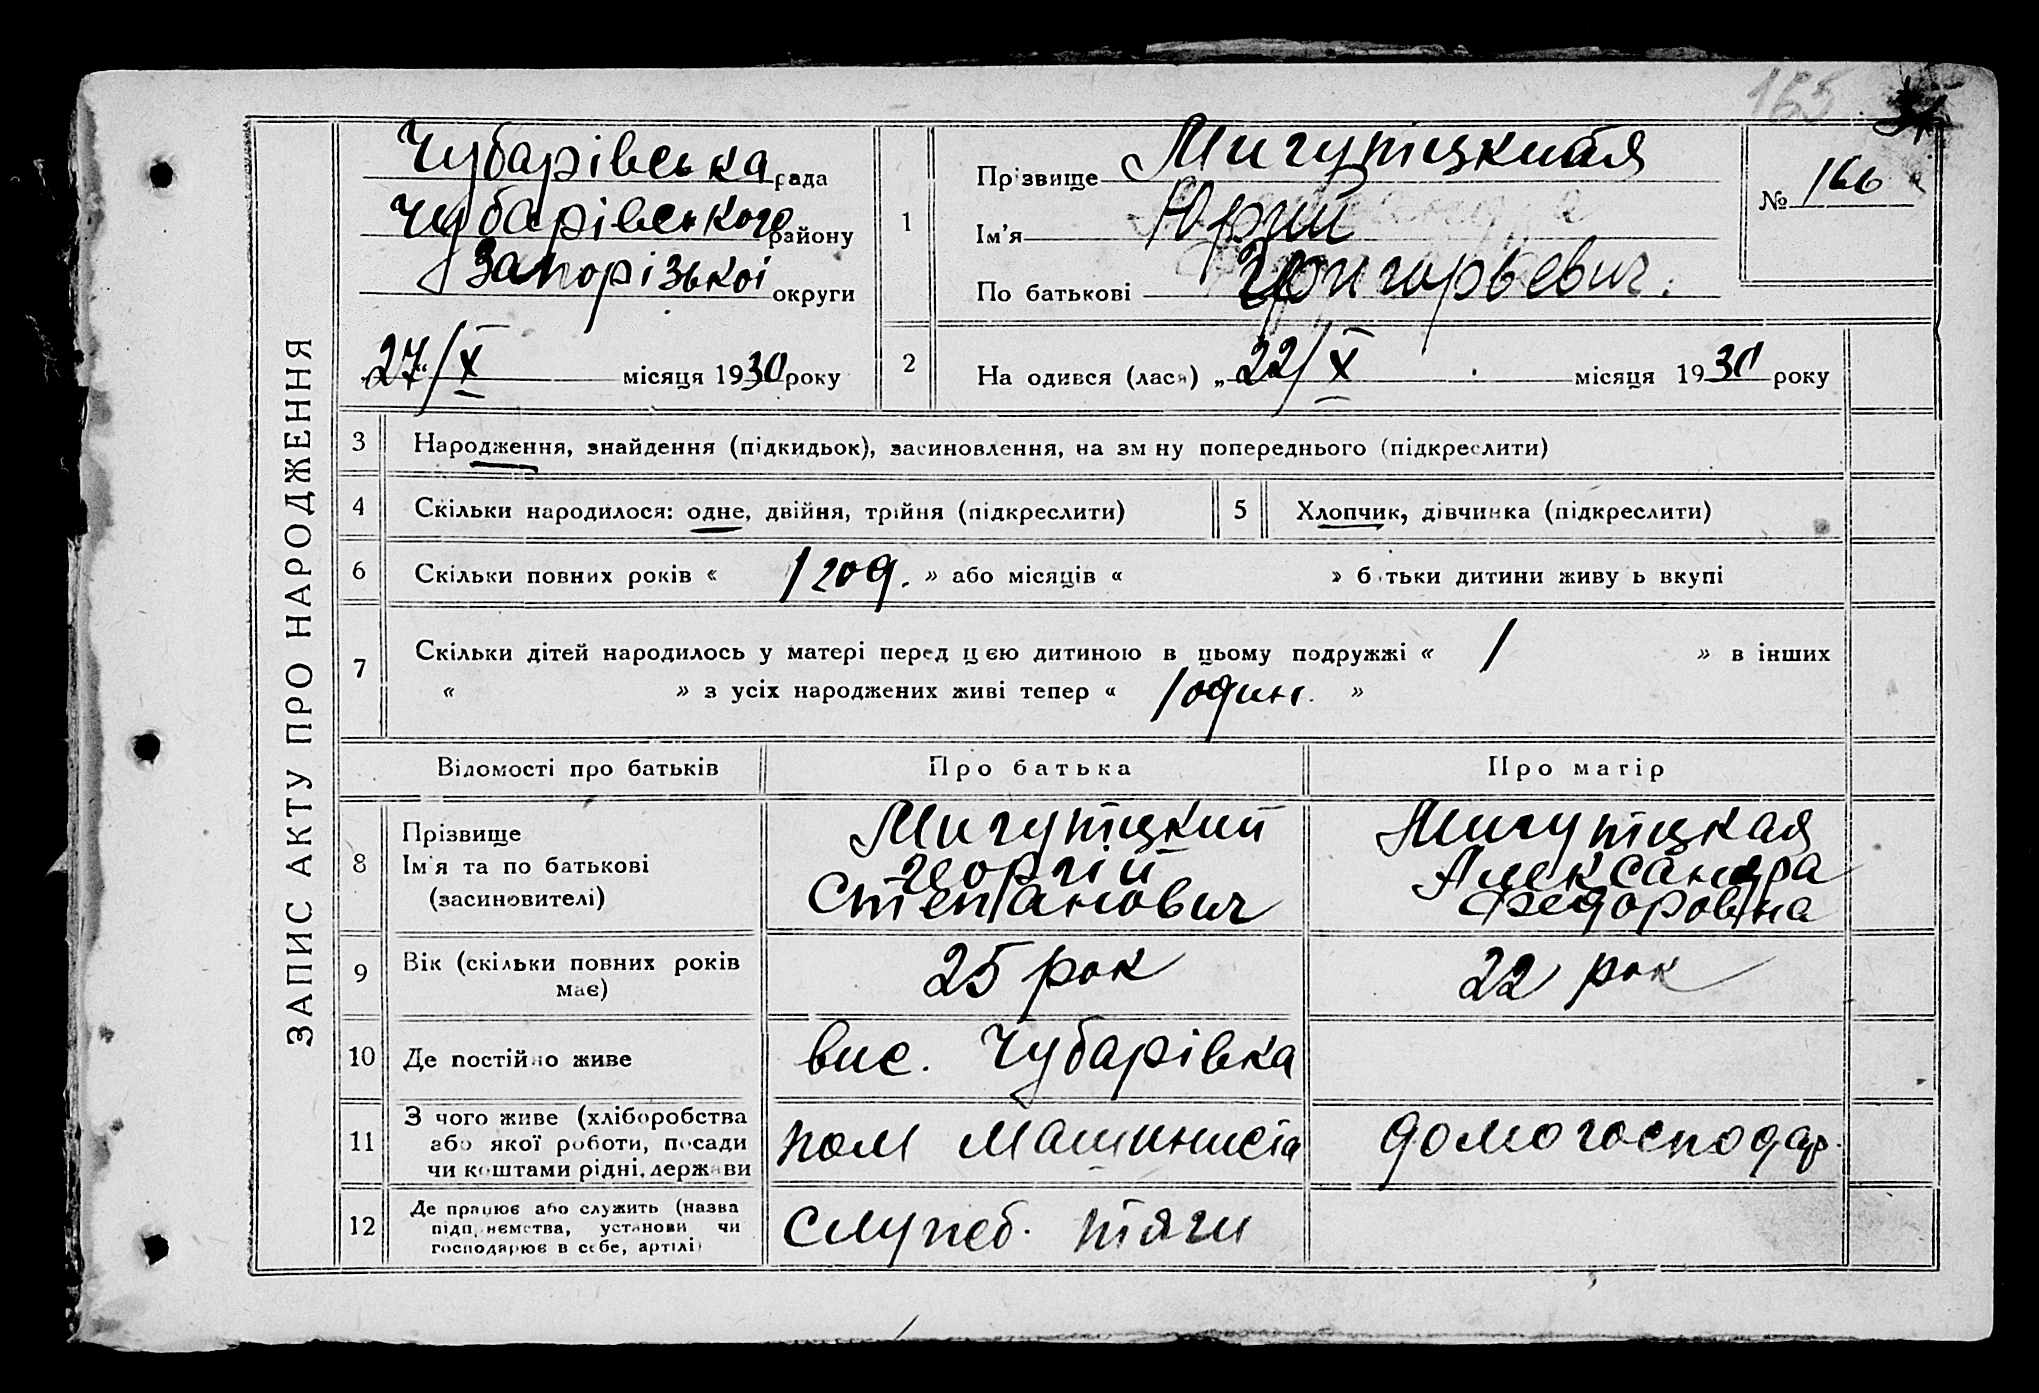 165 31
ЗАПИС АКТУ ПРО НАРОДЖЕННЯ
Чубарівська рада
Чубарівського району
Запорізької округи
27/X місяця 1930 року
1
Прізвище Мигутіцкий
Ім'я Юрий
По батькові
№ 166
2
На одився (лася) „ 22/X місяця 1930 року
3 Народження, знайдення (підкидьок), засиновлення, на зм ну попереднього (підкреслити)
4 Скільки народилося: одне, двійня, трійня (підкреслити)
5 Хлопчик, дівчинка (підкреслити)
6 Скільки повних років « 1 год. » або місяців « » б тьки дитини живу ь вкупі
7 Скільки дітей народилось у матері перед цією дитиною в цьому подружжі « 1 » в інших
« » з усіх народжених живі тепер « 1 один. »
Відомості про батьків Про батька Про матір
8 Прізвище
Ім'я та по батькові
(засиновителі)
Мигутіцкий
Георгій
Степанович
Мигутіцкая
Александра
Федоровна
9 Вік (скільки повних років
має)
25 рок
22 рок
10 Де постійно живе
вис. Чубарівка
11 З чого живе (хліборобства
або якої роботи, посади
чи коштами рідні, держави
пом машиниста
домогосподар.
12 Де працює або служить (назва
підприємства, установи чи
господарює в себе, артілі)
служб. тяги